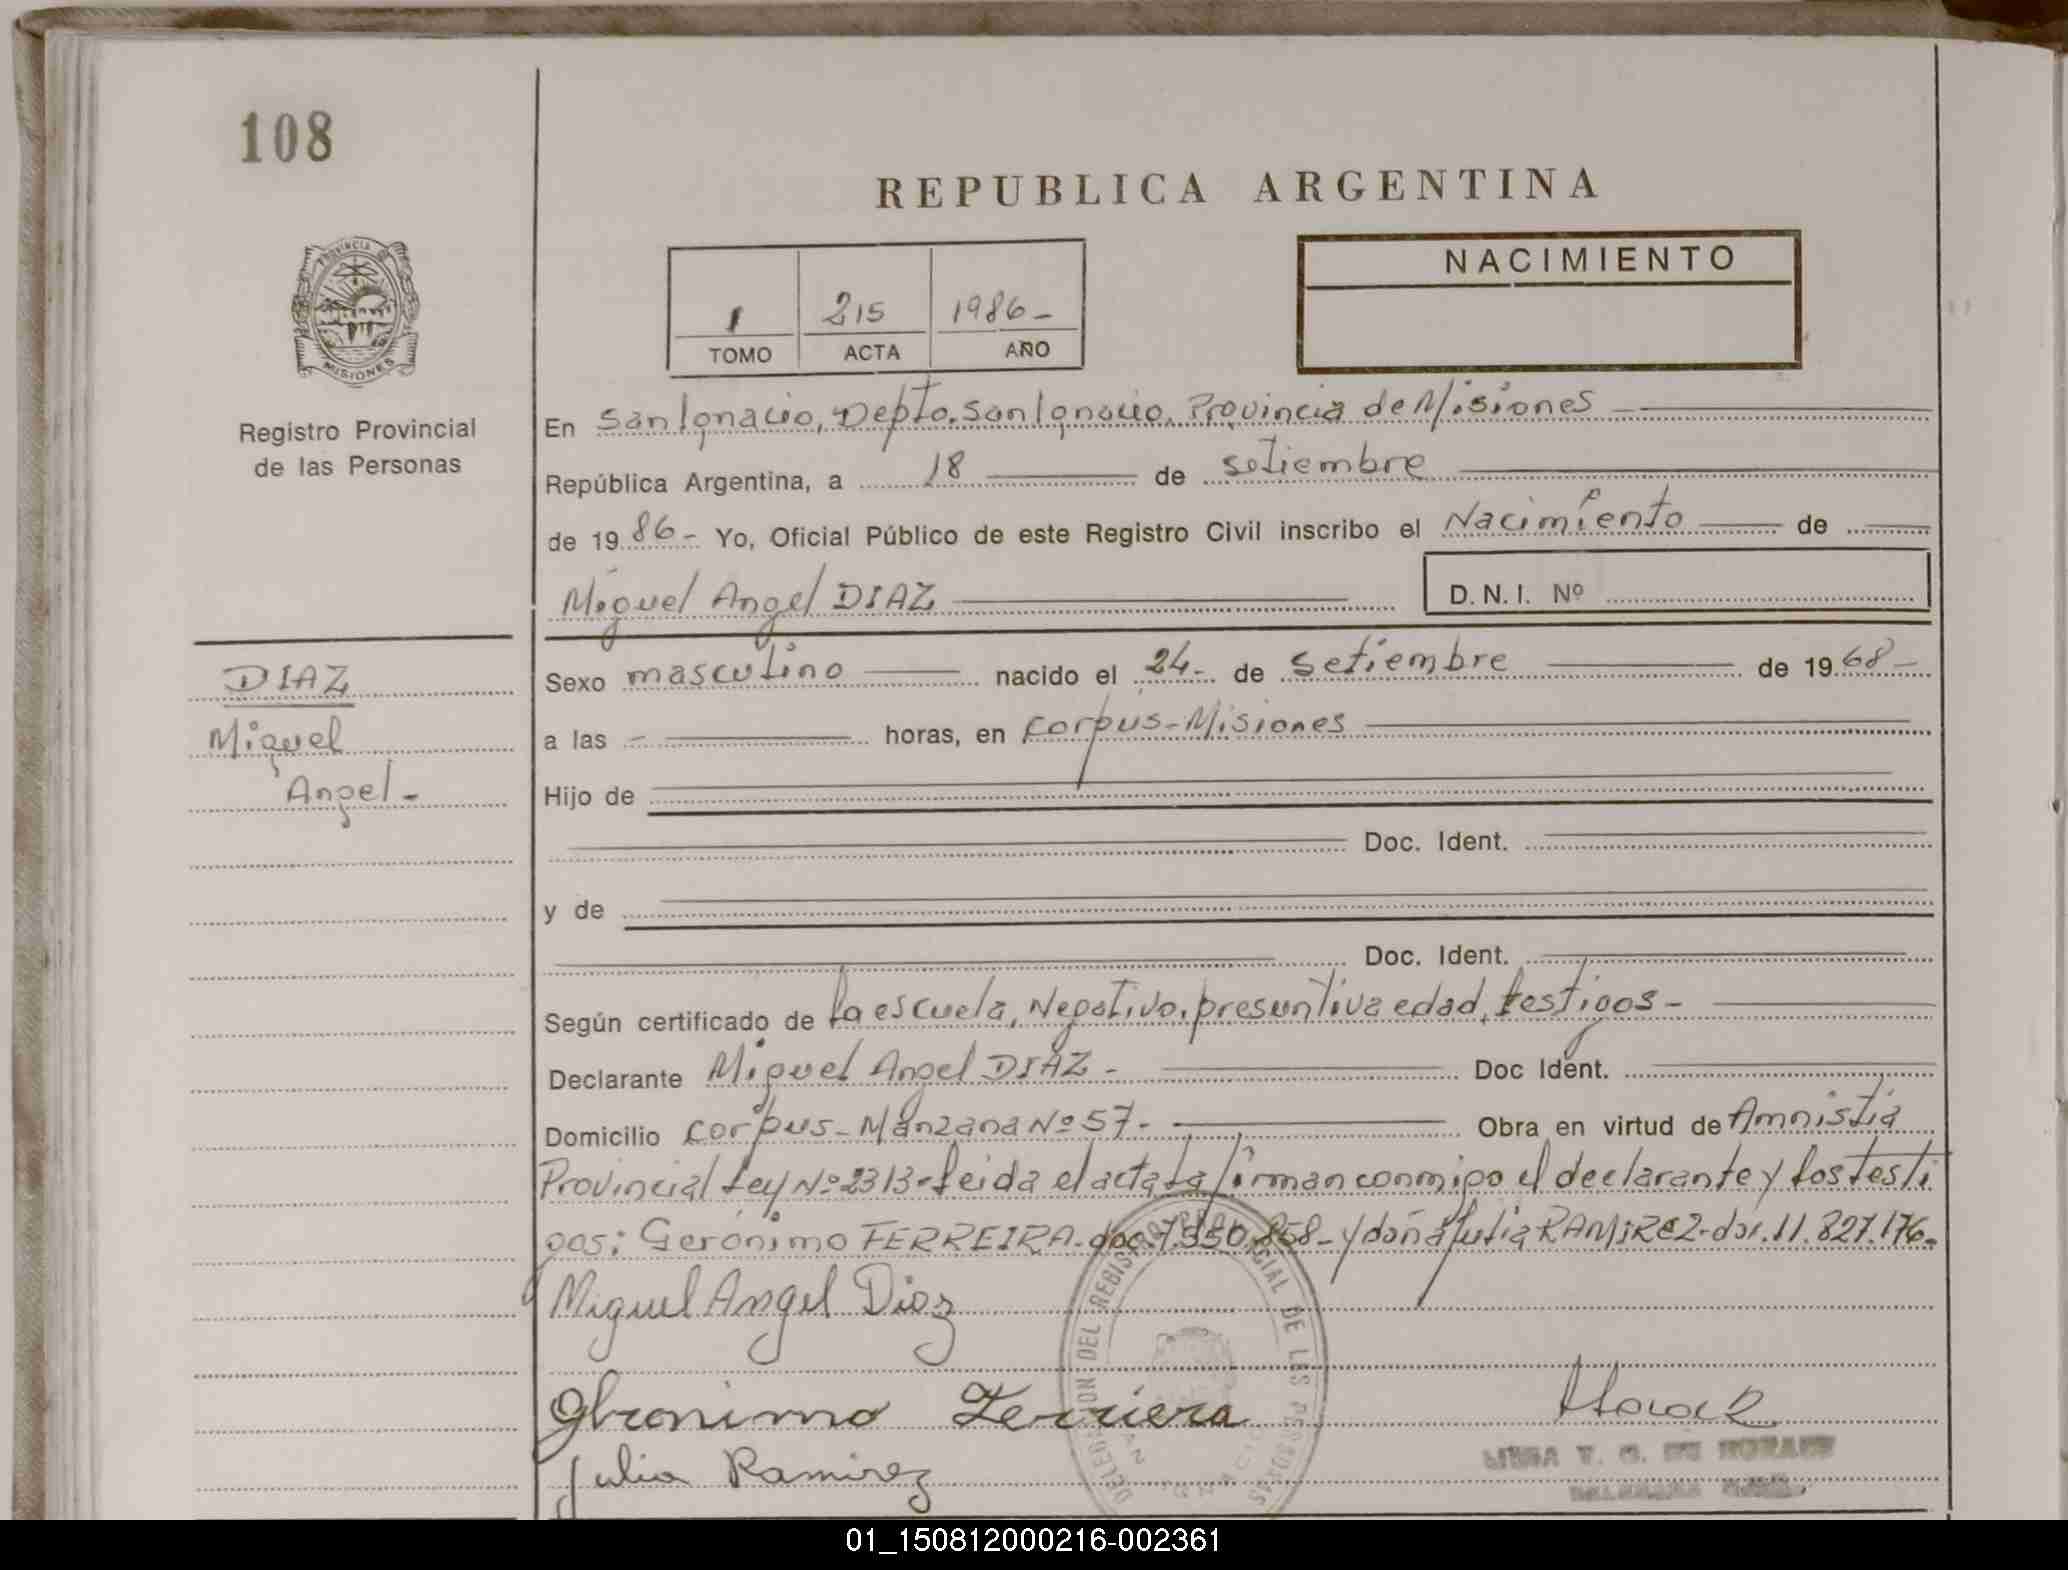 108
REPUBLICA ARGENTINA
NACIMIENTO
1 215 1986-
TOMO ACTA AÑO
PROVINCIA
MISIONES
Registro Provincial
de las Personas
En San Ignacio, Depto. San Ignacio, Provincia de Misiones
República Argentina, a 18 de setiembre
de 19 86- Yo, Oficial Público de este Registro Civil inscribo el Nacimiento de
Miguel Angel DIAZ D. N. I. Nº
DIAZ
Miguel
Angel-
Sexo masculino nacido el 24- de setiembre de 19 68-
a las - horas, en Corpus-Misiones
Hijo de
Doc. Ident.
y de
Doc. Ident.
Según certificado de la escuela, Negativo, presuntiva edad, testigos-
Declarante Miguel Angel DIAZ- Doc Ident.
Domicilio Corpus-Manzana Nº 57- Obra en virtud de Amnistia
Provincial Ley Nº 2313-Leida el acta la firman conmigo el declarante y los testi
gos: Gerónimo FERREIRA-doc.7.550.858-y doña Julia RAMIREZ-doc.11.827.176-
Miguel Angel Diaz
Geronimo Ferriera
Julia Ramirez
DELEGACION DEL REGISTRO PROVINCIAL DE LAS PERSONAS
01_150812000216-002361